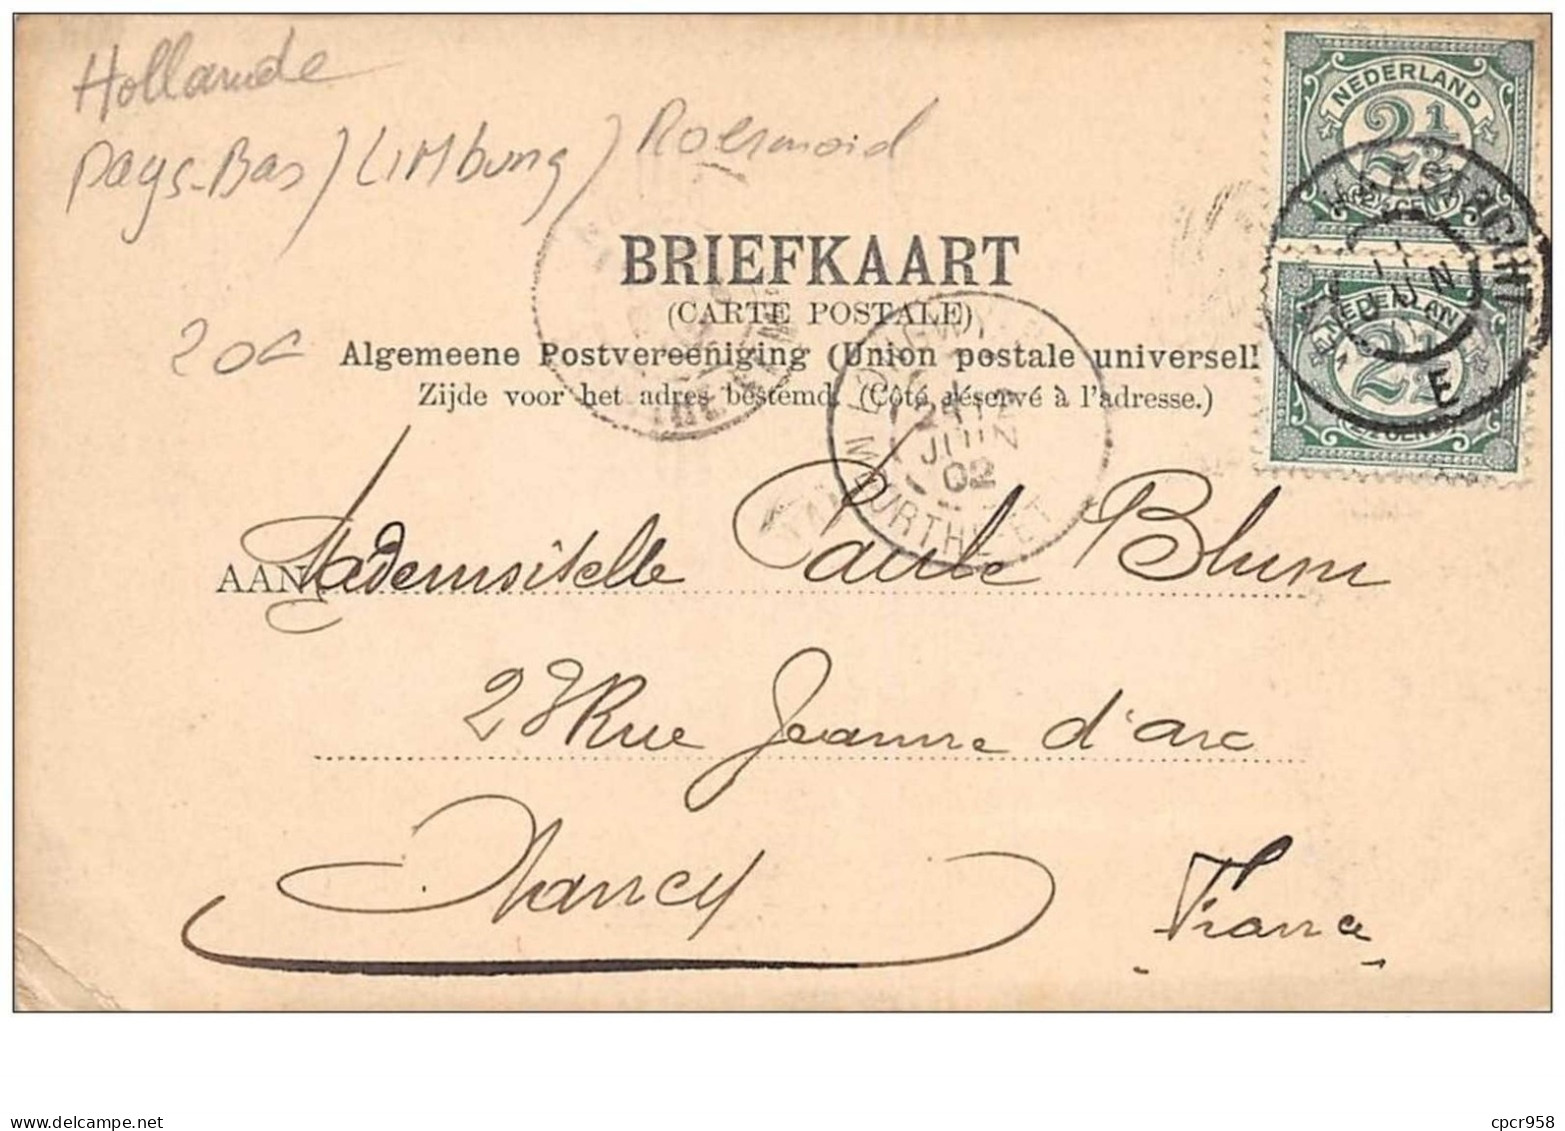 Hollande
Pays-Bas / LIMburg / Roermond
20c
BRIEFKAART
(CARTE POSTALE)
Algemeene Postvereeniging (Union postale universelle
Zijde voor het adres bestemd. (Côté réservé à l'adresse.)
NEDERLAND
2½
2½ CENT
NEDERLAND
2½
CENT
JUN
E
JUIN
02
MEURTHE ET
AAN Mademoiselle Paule Blum
28 Rue Jeanne d'arc
Nancy
France
www.delcampe.net
cpcr958